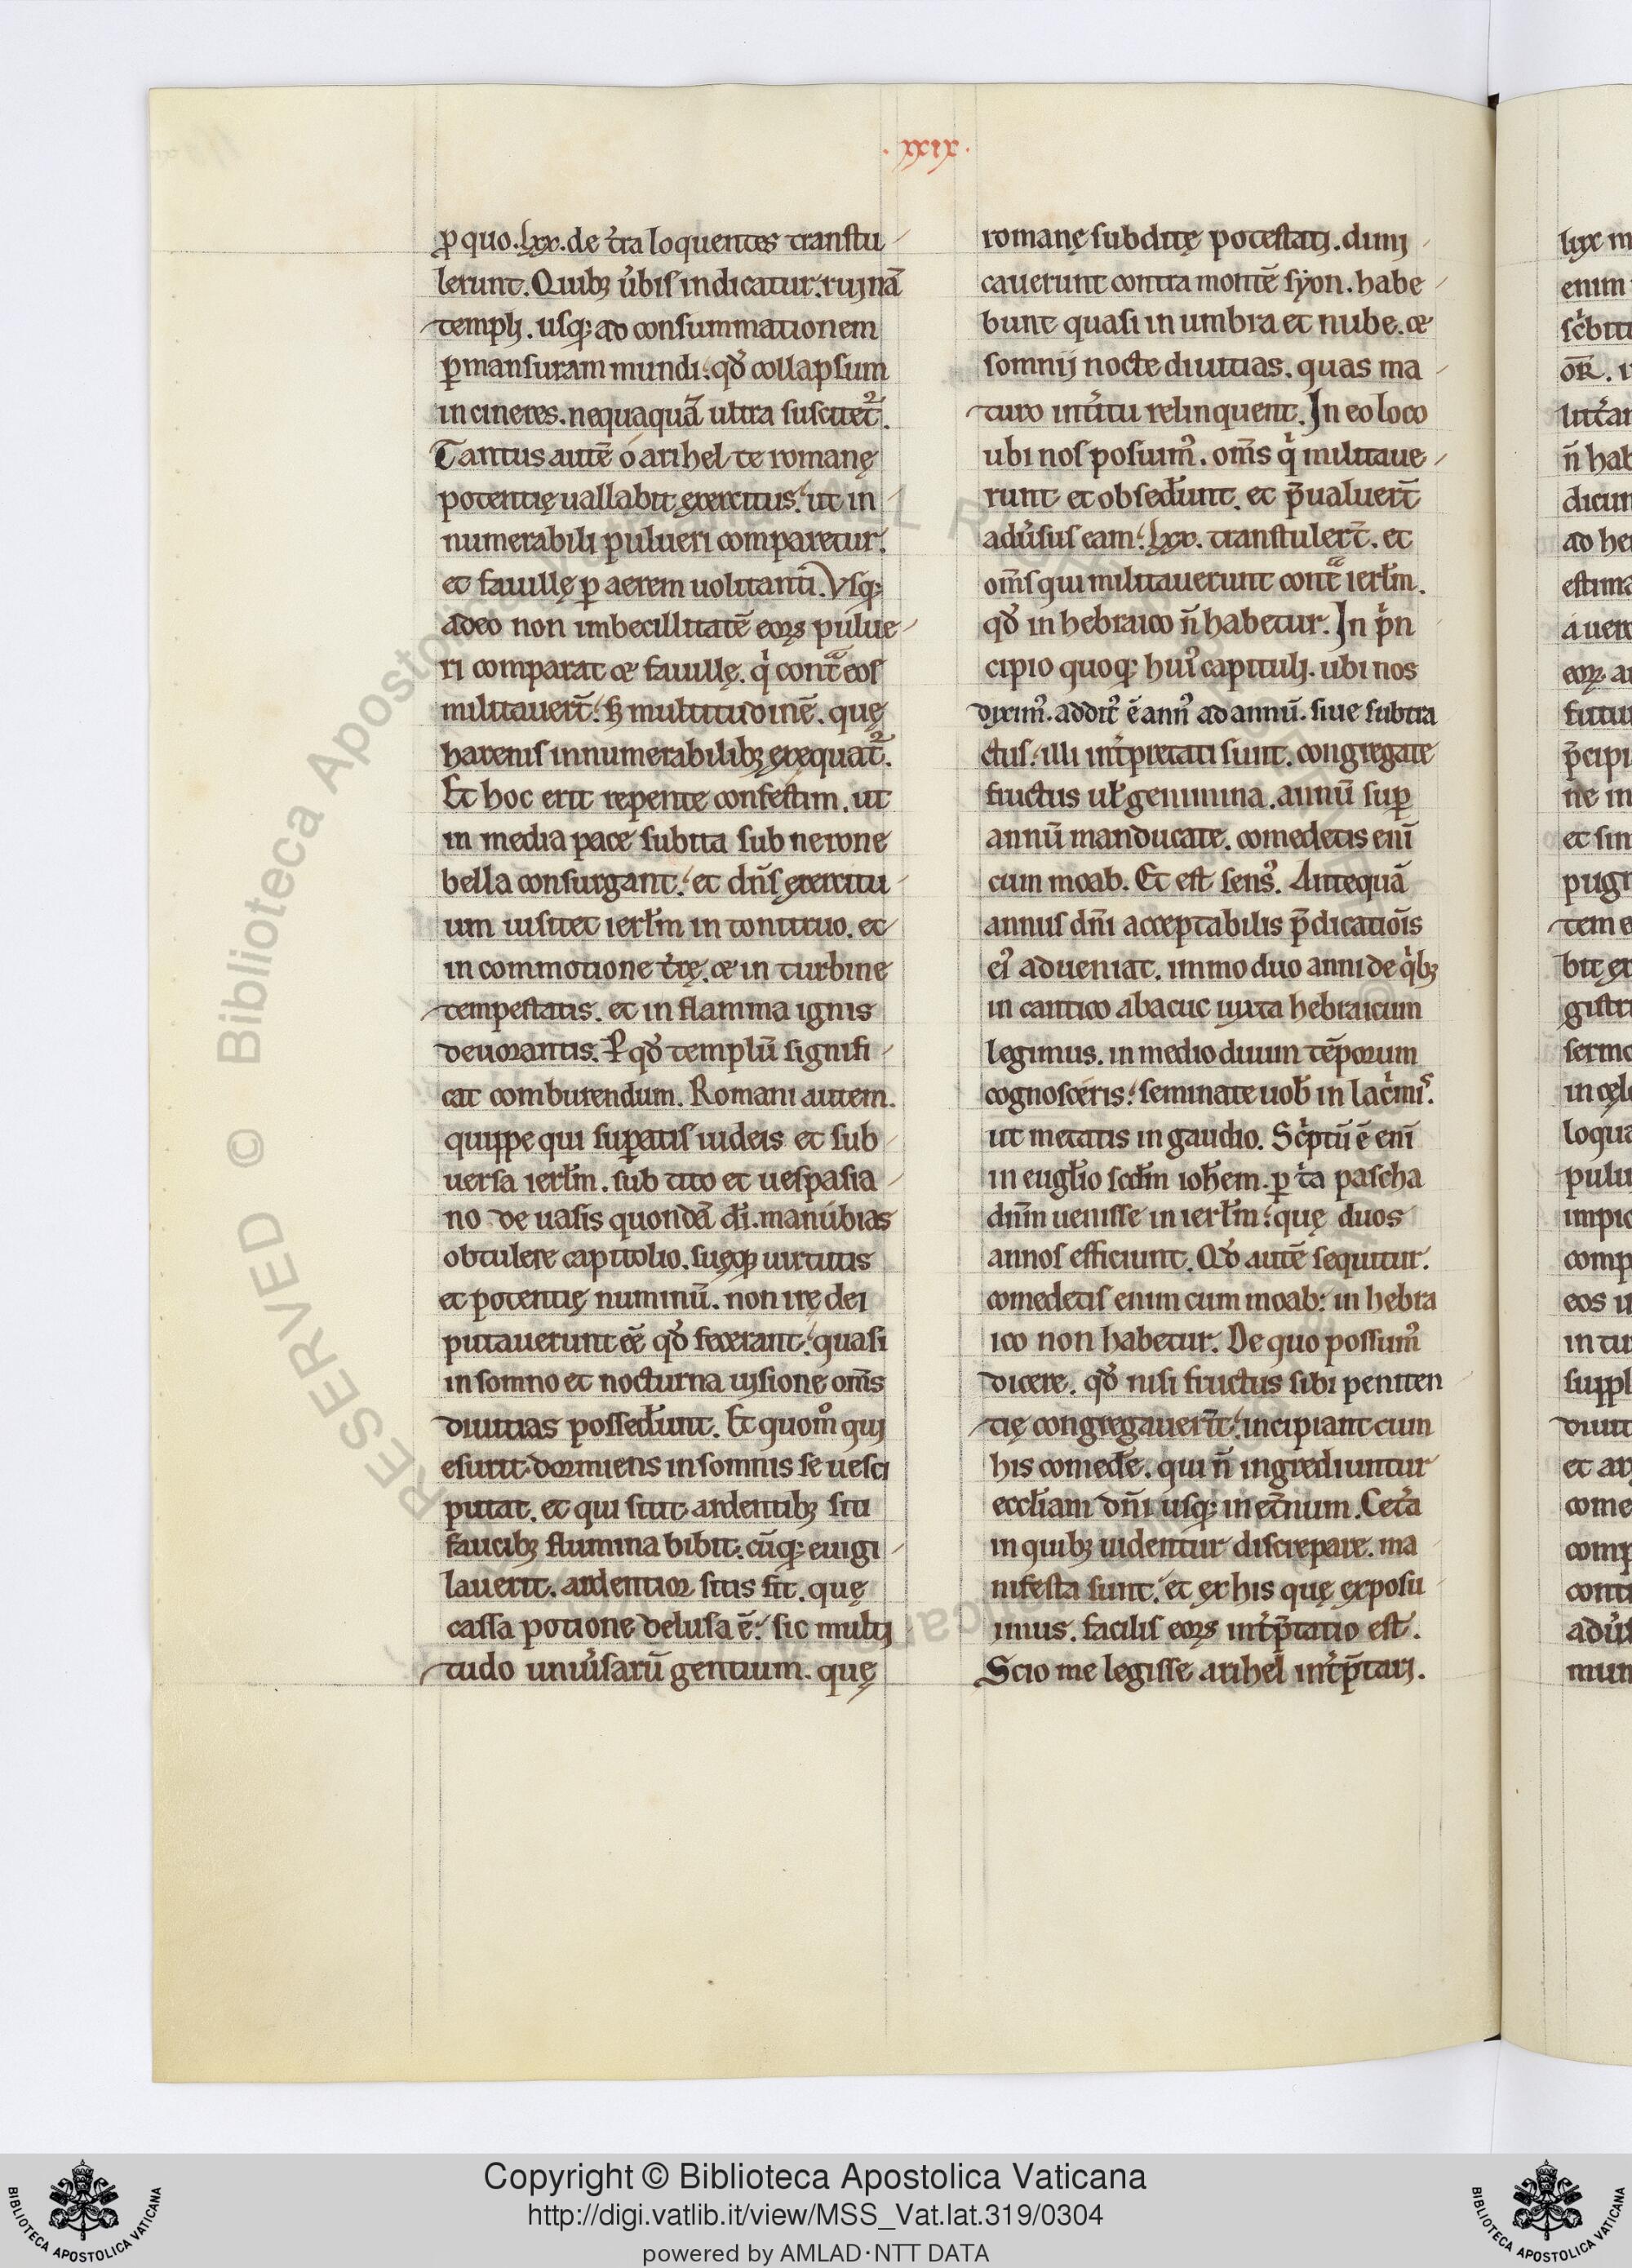 .xxix.
ꝓ quo .lxx. de t̾ra loquentes transtu
lerunt. Quibꝫ u̾bis indicatur. rujnā
templj. usqꝫ ad consummationem
ꝑmansuram mundi. qđ collapsum
in cineres. nequaquā ultra suscitet᷑.
Tantus autē ó arihel te romanę
potentię uallabit exercitus. ut in
numerabili pulueri comparetur.
et fauillę ꝑ aerem uolitanti. Vsqꝫ
adeo non imbecillitatē eoꝝ pulue
ri comparat et fauillę. qͥ contͣ eos
militauert̄. sꝫ multitudinē. quę
harenis innumerabilibꝫ exequat᷑.
Et hoc erit repente confestim. ut
in media pace subita sub nerone
bella consurgant. et dn̄s exercitu
um uisitet ierł̄m in tonitruo. et
in commotione t̾rę. et in turbine
tempestatis. et in flamma ignis
deuorantis. P qđ templū signifi
cat comburendum. Romani autem.
quippe qui suꝑatis iudeis et sub
uersa ierł̄m. sub tito et uespasia
no de uasis quondā dī. manúbias
obtulere capitolio. suęqꝫ uirtutis
et potentię numinū. non irę dei
putauerunt eē qđ fecerant. quasi
in somno et nocturna ujsione om̄s
diuitias possed̾unt. Et quom̊ quj
esurit dormiens in somnis se uesci
putat. et qui sitit ardentibꝫ siti
faucibꝫ flumina bibit. cūqꝫ euigi
lauerit. ardentior sitis fit. quę
cassa potione delusa ē. sic multj
tudo uniu̾sarū gentium. quę
romanę subditę potestatj. dimj
cauerunt contra montē syon. habe
bunt quasi in umbra et nube. et
somnij nocte diuitias. quas ma
turo int̾itu relinquent. In eo loco
ubi nos posuim᾽. om̄s qͥ militaue
runt et obsed̾unt. et p̄ualuert̄
adu̾sus eam. lxx. transtulert̄. et
om̄s qui militauerunt contͣ ierł̄m.
qđ in hebraico n̄ habetur. In pͥn
cipio quoqꝫ hui᾽ capitulj. ubi nos
dixim᾽. addit᾽ ē ann᾽ ad annū. siue subtra
ctus. illi int̾pretati sunt. congregate
fructus uł gemmina. annū suꝑ
annū manducate. comedetis enī
cum moab. Et est sens᾽. Antequā
annus dn̄i acceptabilis p̄dicatiōis
ei᾽ adueniat. immo duo anni de qͥbꝫ
in cantico abacuc iuxta hebraicum
legimus. in medio duum tēporum
cognosceris. seminate uob̄ in lacͥmis.
ut metatis in gaudio. Scͥptū ē enī
in eugł̄io scđm ioh̄em. ꝑ tͥa pascha
dn̄m uenisse in ierł̄m. quę duos
annos efficiunt. Qđ autē sequitur.
comedetis enim cum moab. in hebra
ico non habetur. De quo possum᾽
dicere. qđ nisi fructus sibi peniten
tię congregauerīt. incipiant cum
his comed̾e. qui n̄ ingrediuntur
eccł̄iam dn̄i usqꝫ in et̾num. Cet̾a
in quibꝫ uidentur discrepare. ma
nifesta sunt. et ex his quę exposu
imus. facilis eoꝝ int̾p̄tatio est.
Scio me legisse arihel int̾p̄tarj.
Copyright © Biblioteca Apostolica Vaticana
http://digi.vatlib.it/view/MSS_Vat.lat.319/0304
powered by AMLAD·NTT DATA